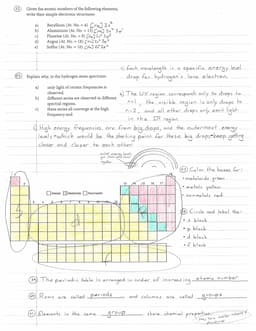 Given the atomic numbers of the following elements,
write their simple electronic structures:
a) Beryllium (At. No. = 4) [He] 2s²
b) Aluminium (At. No. = 13) [Ne] 3s² 3p¹
c) Fluorine (At. No. = 9) [He] 2s² 2p⁵
d) Argon (At. No. = 18) [Ne] 3s² 3p⁶
e) Sulfur (At. No. = 16) [Ne] 3s² 3p⁴
Explain why, in the hydrogen atom spectrum:
a) only light of certain frequencies is
observed
b) different series are observed in different
spectral regions.
c) these series all converge at the high
frequency end
a) Each wavelength is a specific energy level
drop for hydrogen's lone electron.
b) The UV region corresponds only to drops to
n=1, the visible region is only drops to
n=2, and all other drops only emit light
in the IR region.
c) High energy frequencies are from big drops, and the outermost energy
levels which would be the starting point for these big drops keep getting
closer and closer to each other!
Color the boxes for:
• metalloids green
• metals yellow
• nonmetals red
Circle and label the:
• s block
• p block
• d block
• f block
The periodic table is arranged in order of increasing atomic number
Rows are called periods and columns are called groups
Elements in the same group share chemical properties